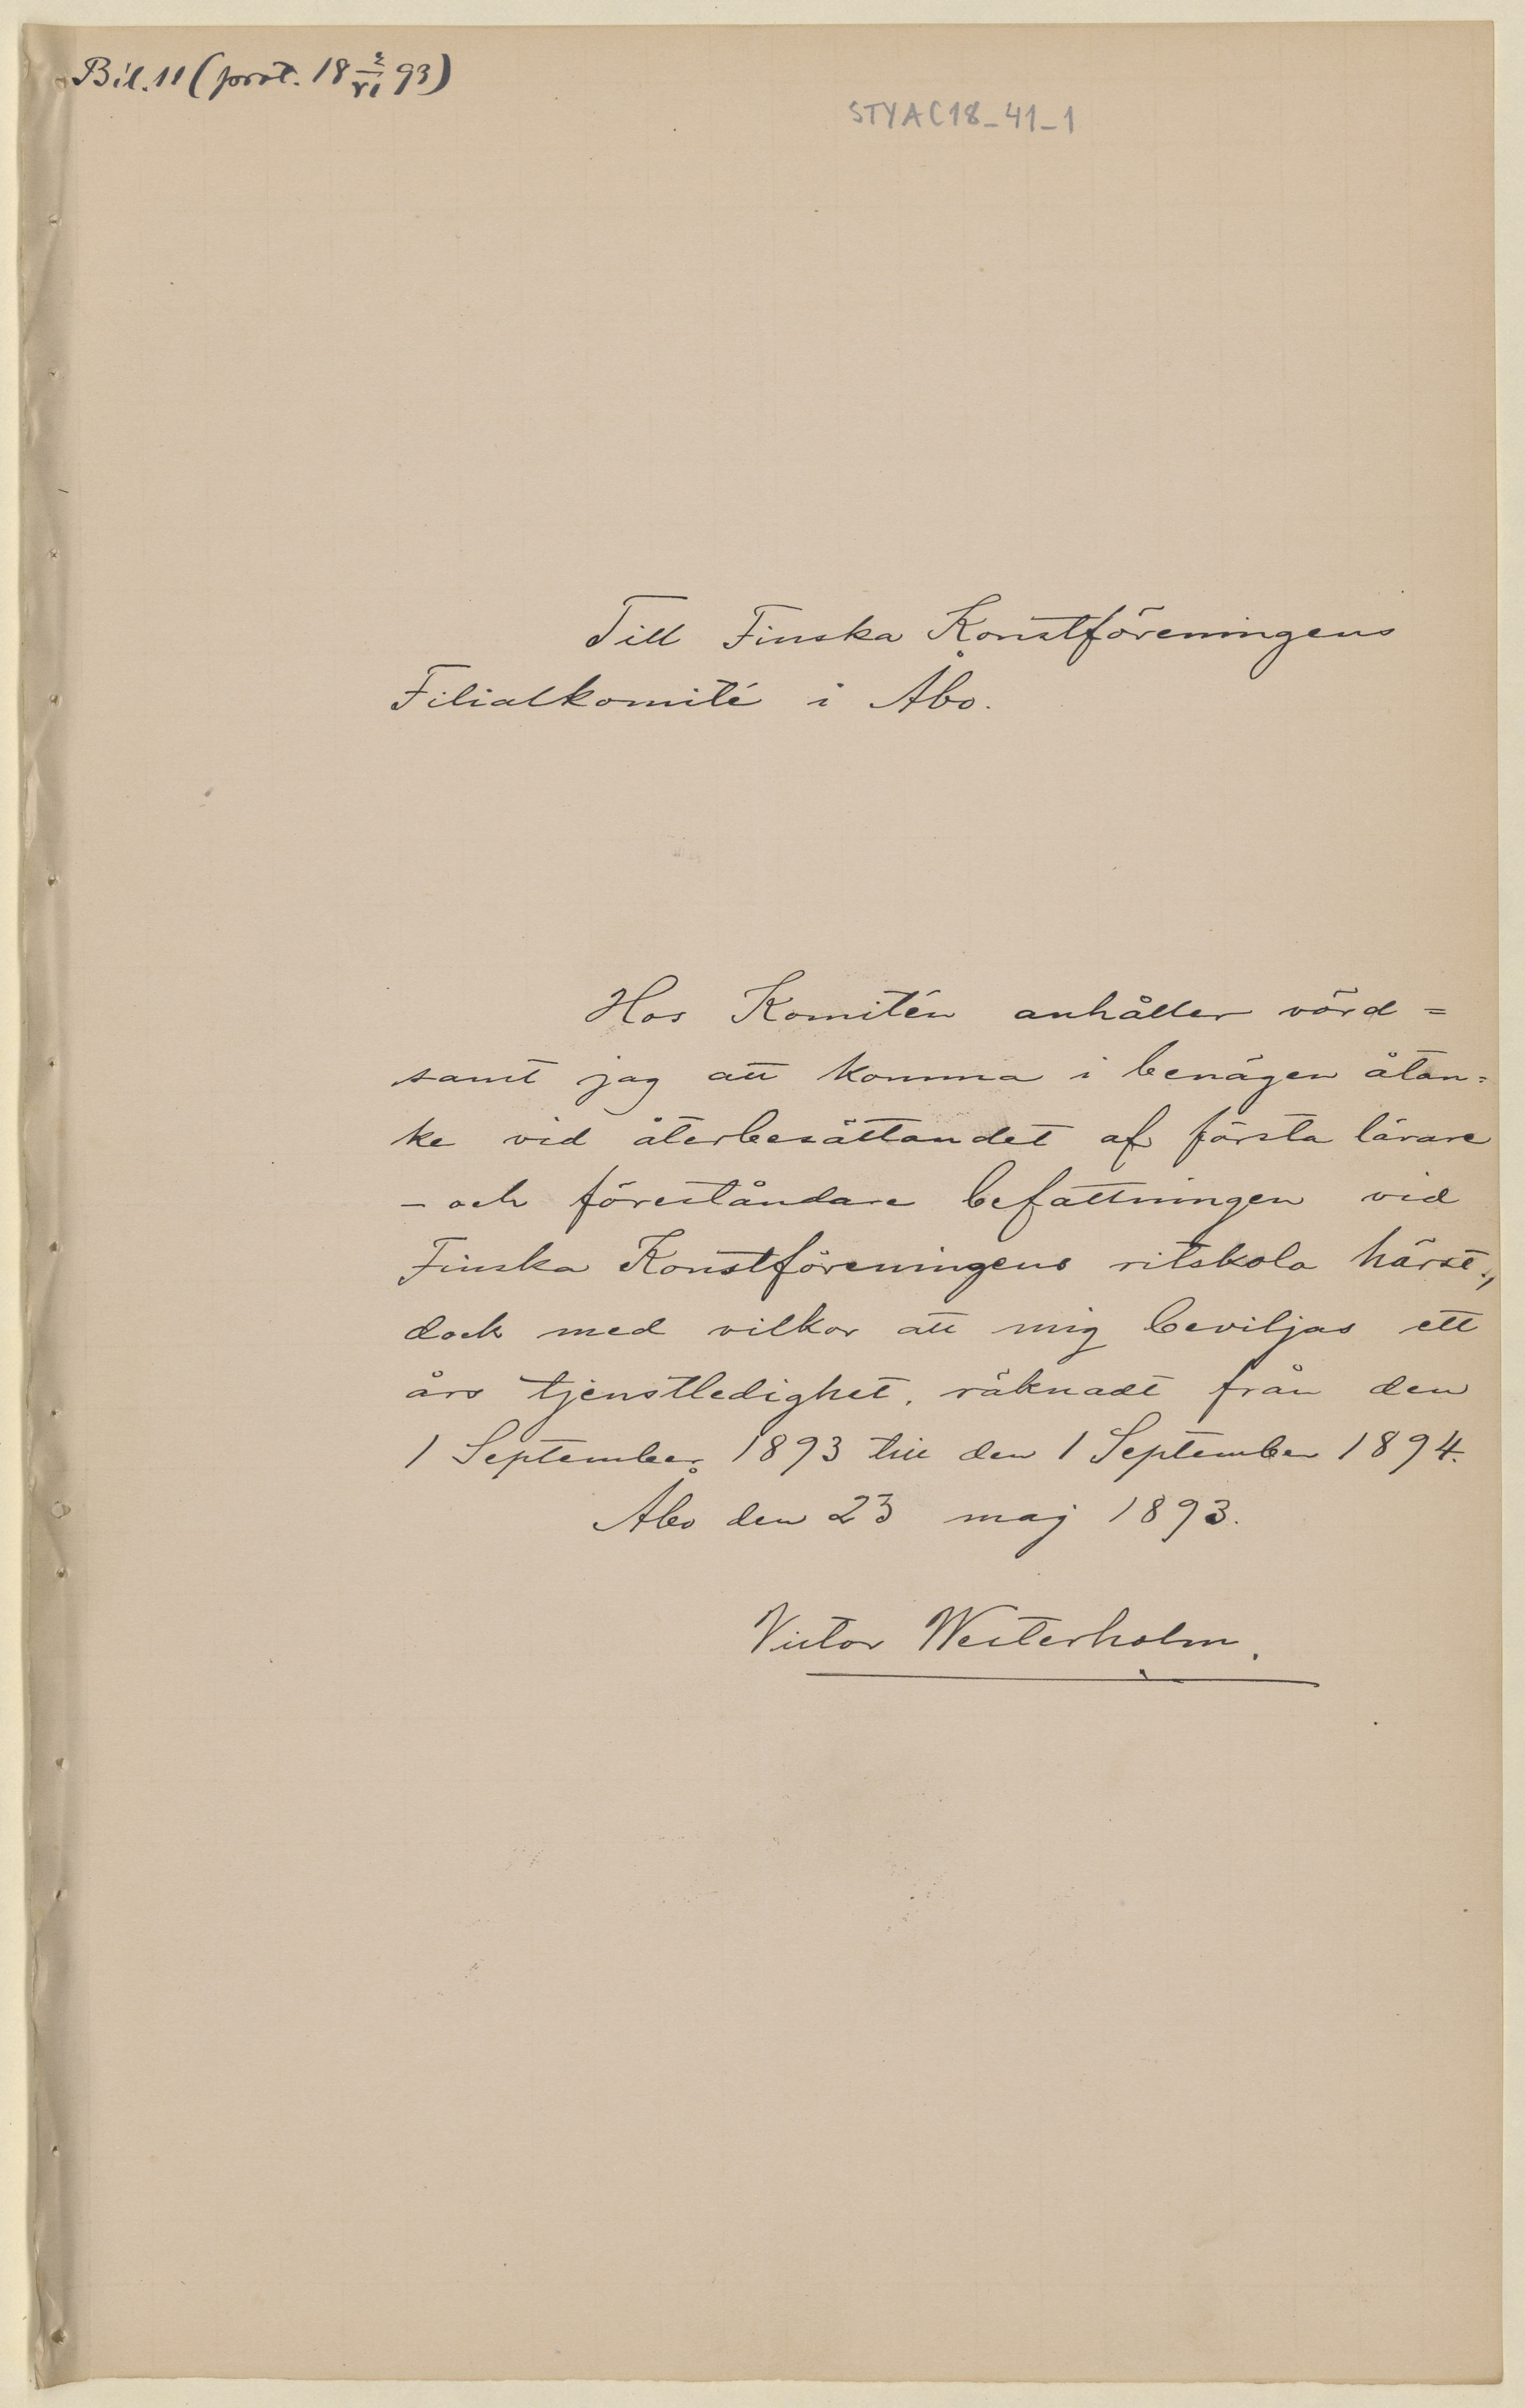 Bil. 11 (prot. 18 2/VI 93)
STYA C18_41_1
Till Finska Konstföreningens
Filialkomité i Åbo.
Hos Komitén anhåller vörd=
samt jag att komma i benägen åtan=
ke vid återbesättandet af första lärare
- och föreståndare befattningen vid
Finska Konstföreningens ritskola härst.,
dock med vilkor att mig beviljas ett
års tjenstledighet, räknadt från den
1 September 1893 till den 1 September 1894.
Åbo den 23 maj 1893.
Victor Westerholm.